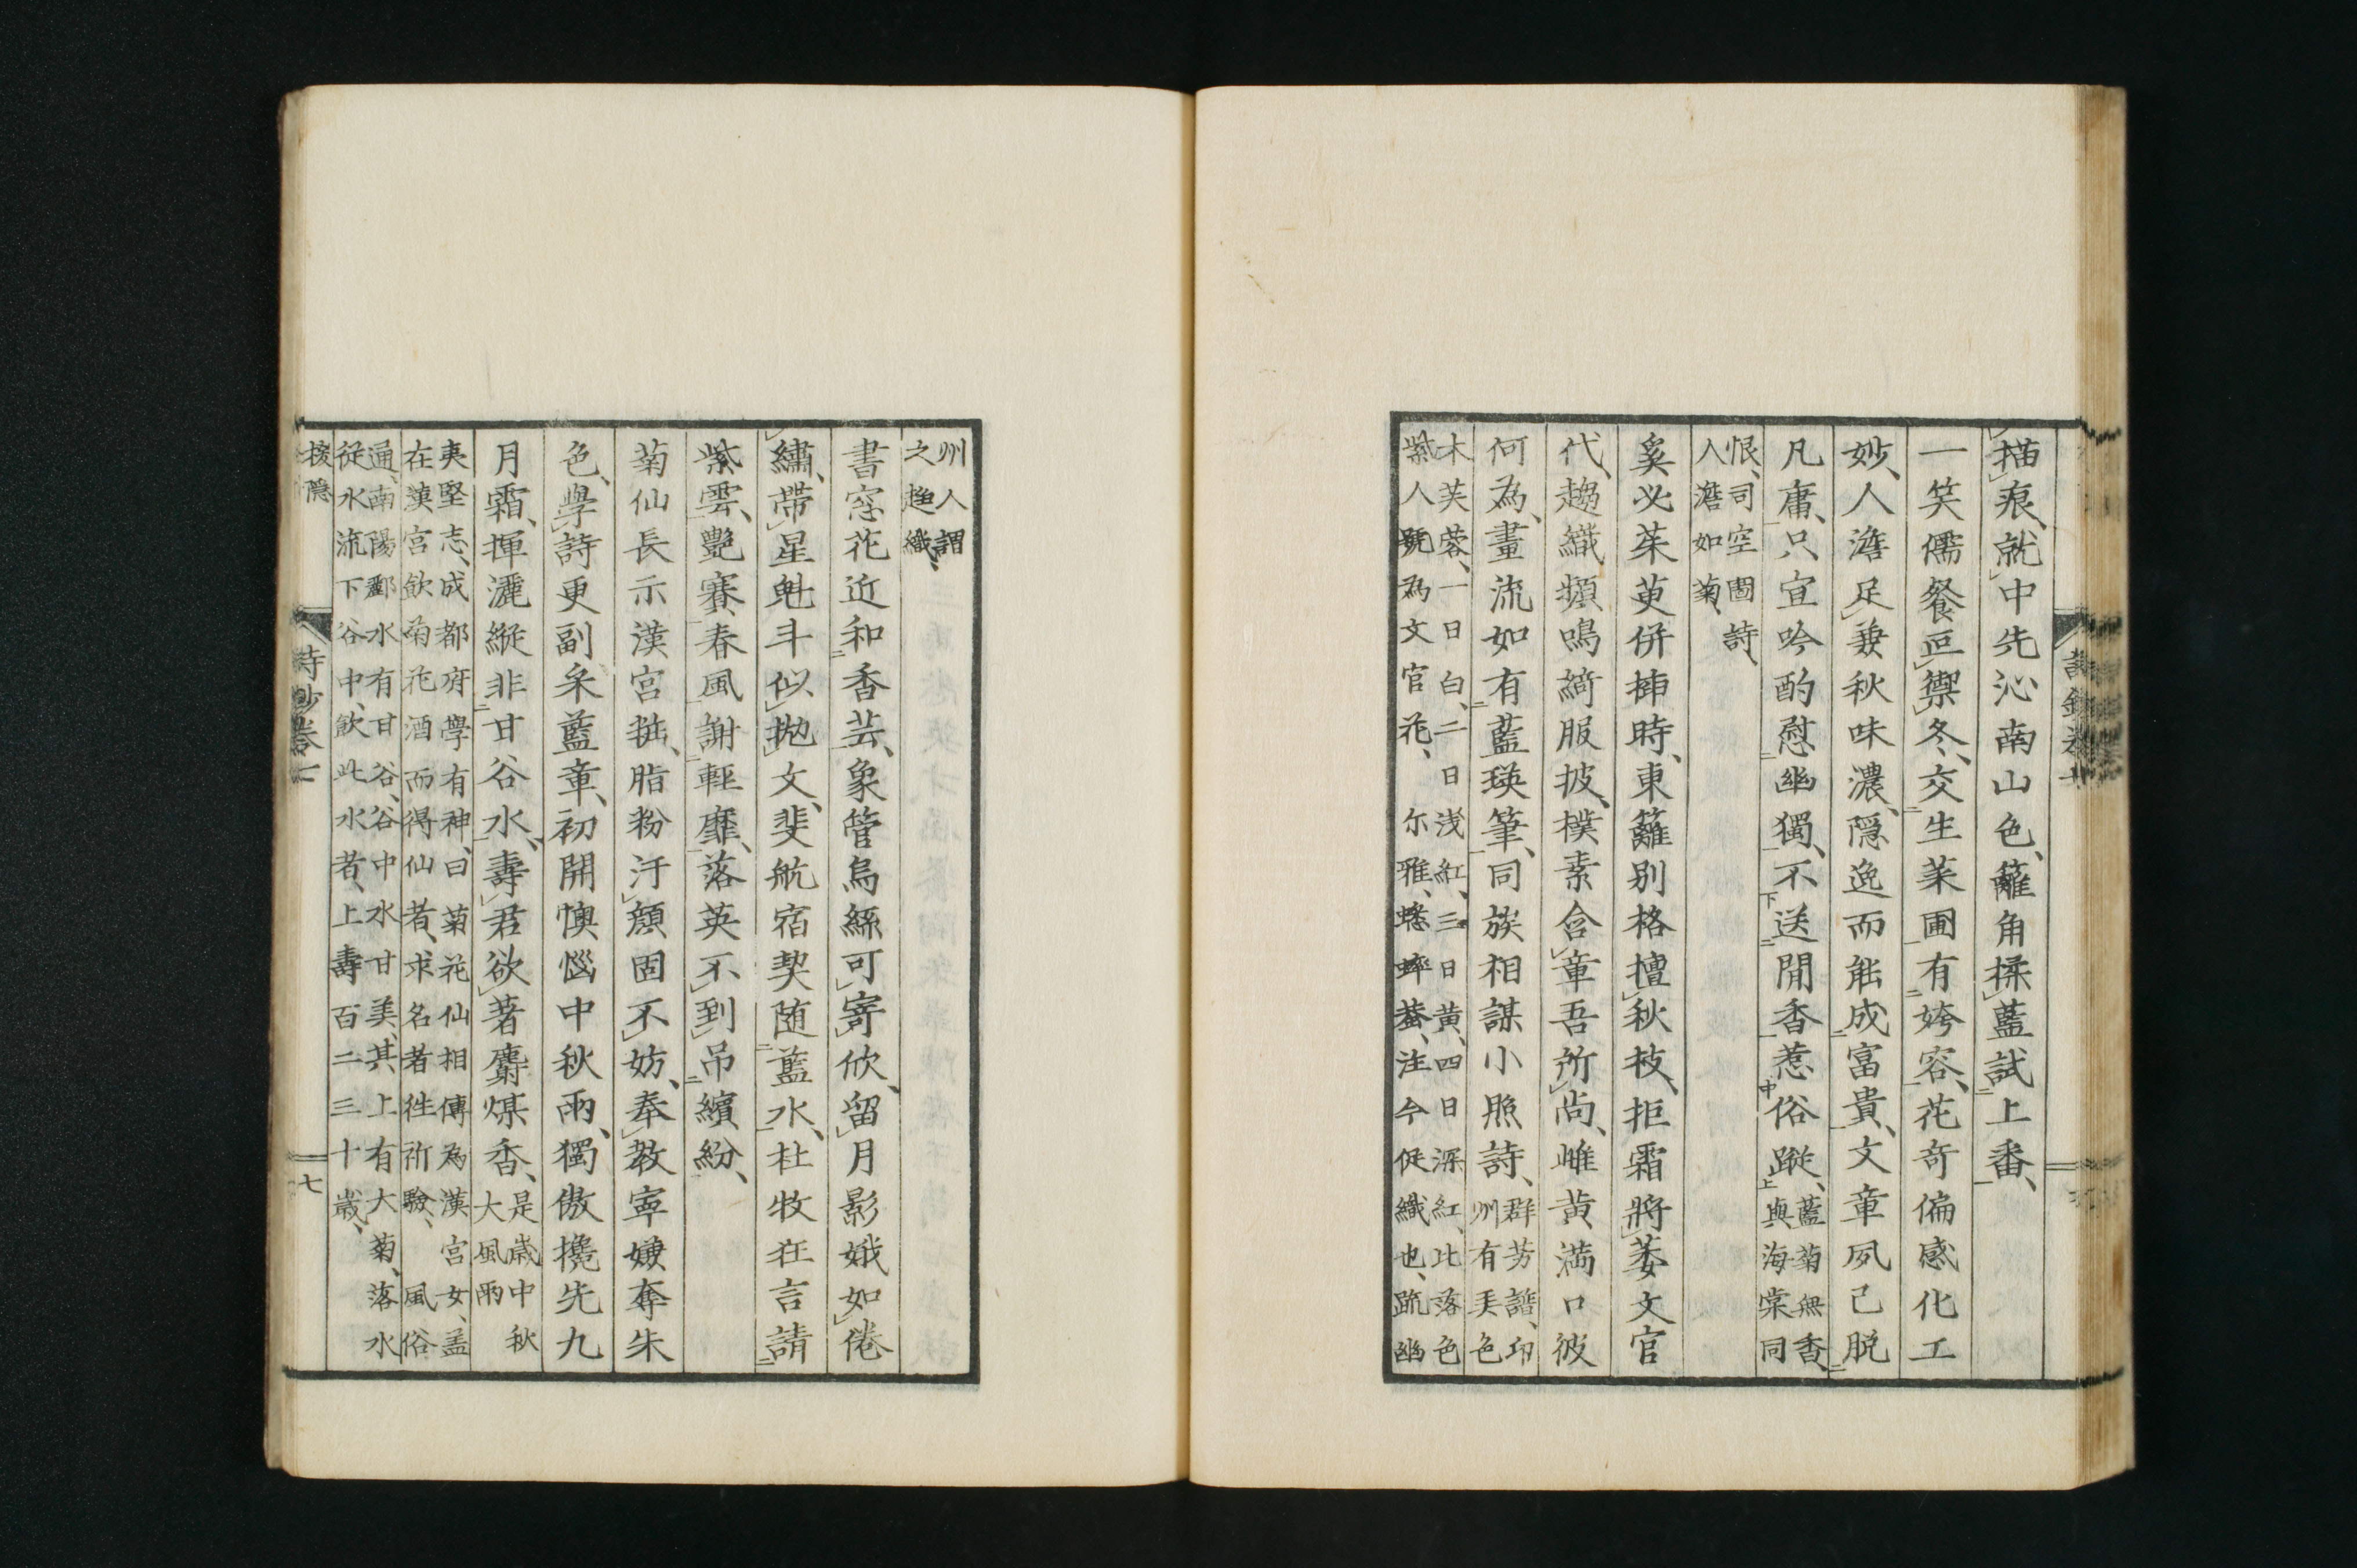 描痕、就中先沁南山色、籬角揉藍試上番、
一笑儒餐豆禦冬、交生菜圃有姱容、花奇偏感化工
妙、人澹足兼秋味濃、隱逸而能成富貴、文章夙己脱
凡庸、只宜吟酌慰幽獨、不送閒香惹俗蹤、藍菊無香、與海棠同
恨、司空圖詩、人澹如菊、
奚必茱萸併揷時、東籬別格擅秋枝、拒霜將萎文官
代、趨織頻鳴綺服披、樸素含章吾所尚、雌黄満口彼
何為、畫流如有藍瑛筆、同族相謀小照詩、群芳譜、邛州有美色
木芙蓉、一日白、二日浅紅、三日黄、四日深紅、比落色
紫人號為文官花、尓雅、蟋蟀蛬、注今促織也、疏幽
詩鈔卷一
州人謂
之趨織、
書窓花近和香芸、象管烏絲可寄欣、留月影娥如倦
繡、帶星魁斗似抛文、斐航宿契随藍水、杜牧狂言請
紫雲、艷賽春風謝輕靡、落英不到吊繽紛、
菊仙長示漢宮粧、脂粉汙顔固不妨、奉教寧嫌奪朱
色、學詩更副采藍章、初開懊惱中秋雨、獨傲攙先九
月霜、揮灑縱非甘谷水、壽君欲著麝煤香、是歳中秋大風雨
夷堅志、成都府學有神、曰菊花仙相傳為漢宮女、盖
在漢宮飲菊花酒而得仙者、求名者徃祈驗、風俗
通、南陽酈水有甘谷、谷中水甘美、其上有大菊、落水
從水流下谷中、飲此水者、上壽百二三十歳、
詩鈔卷一
七